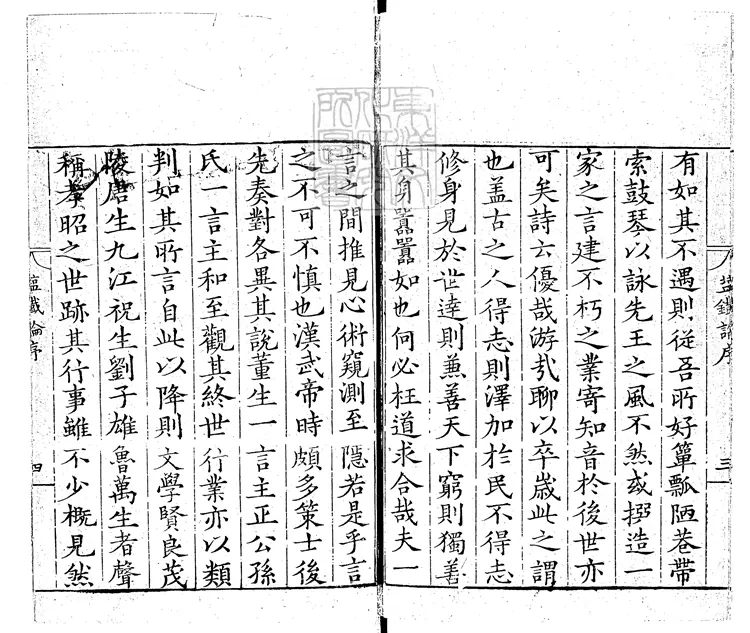 有如其不遇則從吾所好簞瓢陋巷帶
索鼓琴以詠先王之風不然或撰造一
家之言建不朽之業寄知音於後世亦
可矣詩云優哉游哉聊以卒歲此之謂
也盖古之人得志則澤加於民不得志
修身見於世達則兼善天下窮則獨善
其身囂囂如也何必枉道求合哉夫一
鹽鐵論序
三
言之間推見心術窺測至隱若是乎言
之不可不慎也漢武帝時頗多策士後
先奏對各異其說董生一言主正公孫
氏一言主和至觀其終世行業亦以類
判如其所言自此以降則文學賢良茂
陵唐生九江祝生劉子雄魯萬生者聲
稱孝昭之世跡其行事雖不少概見然
鹽鐵論序
四